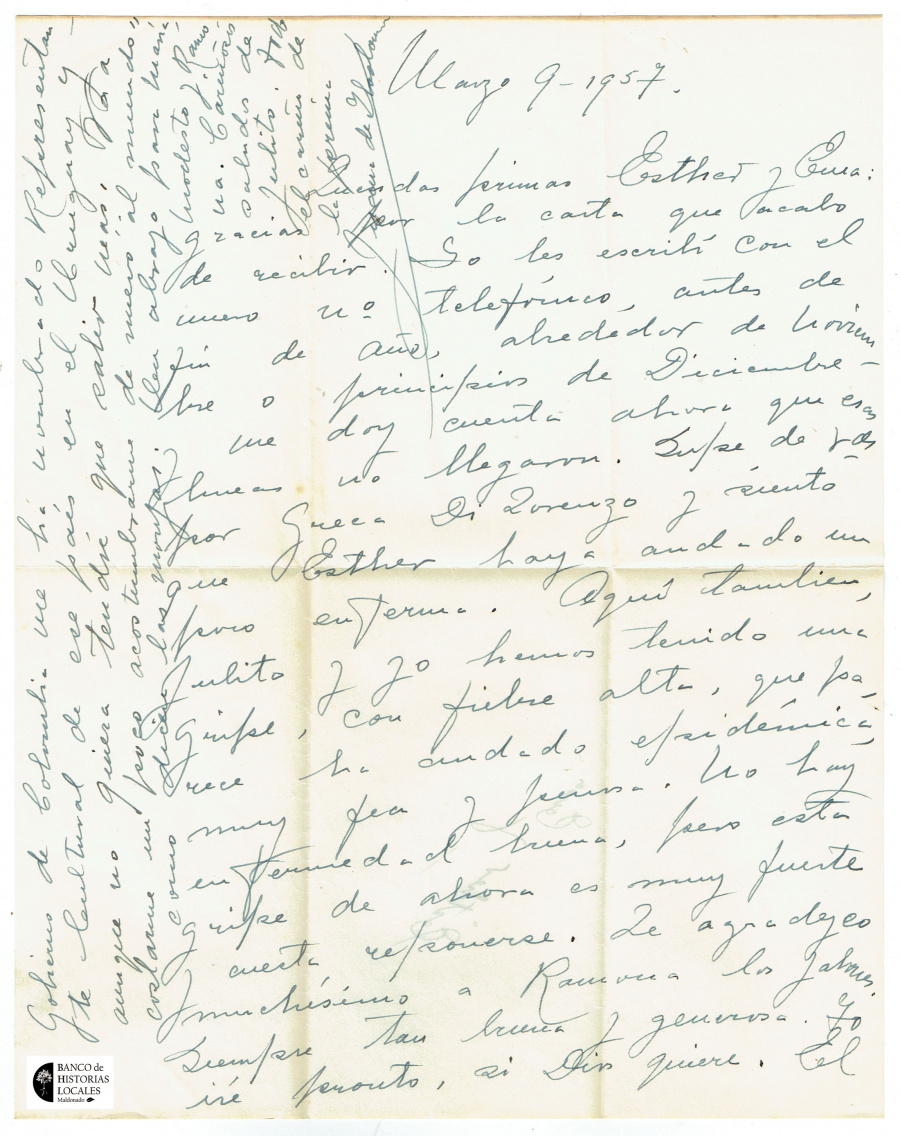 Marzo 9-1957.
Queridas primas Esther y Ema:
gracias por la carta que acabo
de recibir. Yo les escribí con el
nuevo nº telefónico, antes de
fin de año, alrededor de Noviem
bre o principios de Diciembre -
me doy cuenta ahora que esas
líneas no llegaron. Supe de Vds
por Queca Di Lorenzo y siento
que Esther haya andado un
poco enferma. Aquí tambien,
Julito y yo hemos tenido una
gripe, con fiebre alta, que pa
rece ha andado epidémica,
muy fea y penosa. No háy
enfermedad buena, pero esta
gripe de ahora es muy fuerte
y cuesta reponerse. Le agradezco
muchísimo a Ramona los jabones.
Siempre tan buena y generosa. Yo
iré pronto, si Dios quiere. El
Gobierno de Colombia me há nombrado Representan-
te Cultural de ese país en el Uruguay y
aunque no quiera tendré que salir más. Ya
costarme un poco acostumbrarme de nuevo al "mundo"
como dicen las monjas. Un abrazo para
Modesto y Ramo
na. Cariñosos
saludos de
Julito. Todo
el cariño de
la prima
Juana de Ibarbourou
BANCO de
HISTORIAS
LOCALES
Maldonado